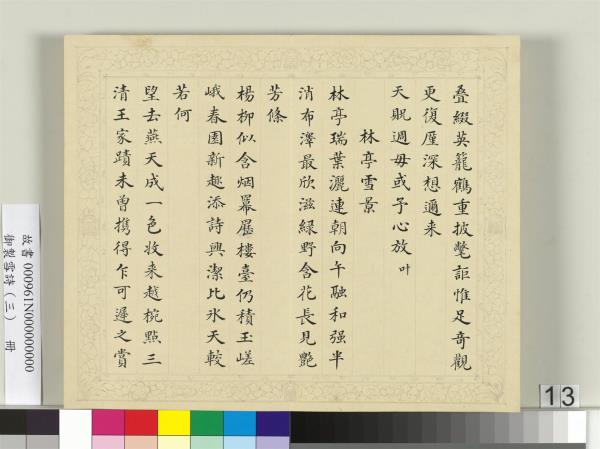 叠綴英籠鶴重披氅詎惟足奇觀
更復廑深想邇来
天貺週毋或予心放叶
林亭雪景
林亭瑞葉灑連朝向午融和强半
消布澤最欣滋緑野含花長見艷
芳條
楊柳似含烟羃䍥樓臺仍積玉嵯
峨春園新趣添詩興潔比氷天較
若何
望去燕天成一色收来越椀點三
清王家蹟未曾携得乍可遲之賞
故書 000961N000000000
御製雪詩(三) 冊
13